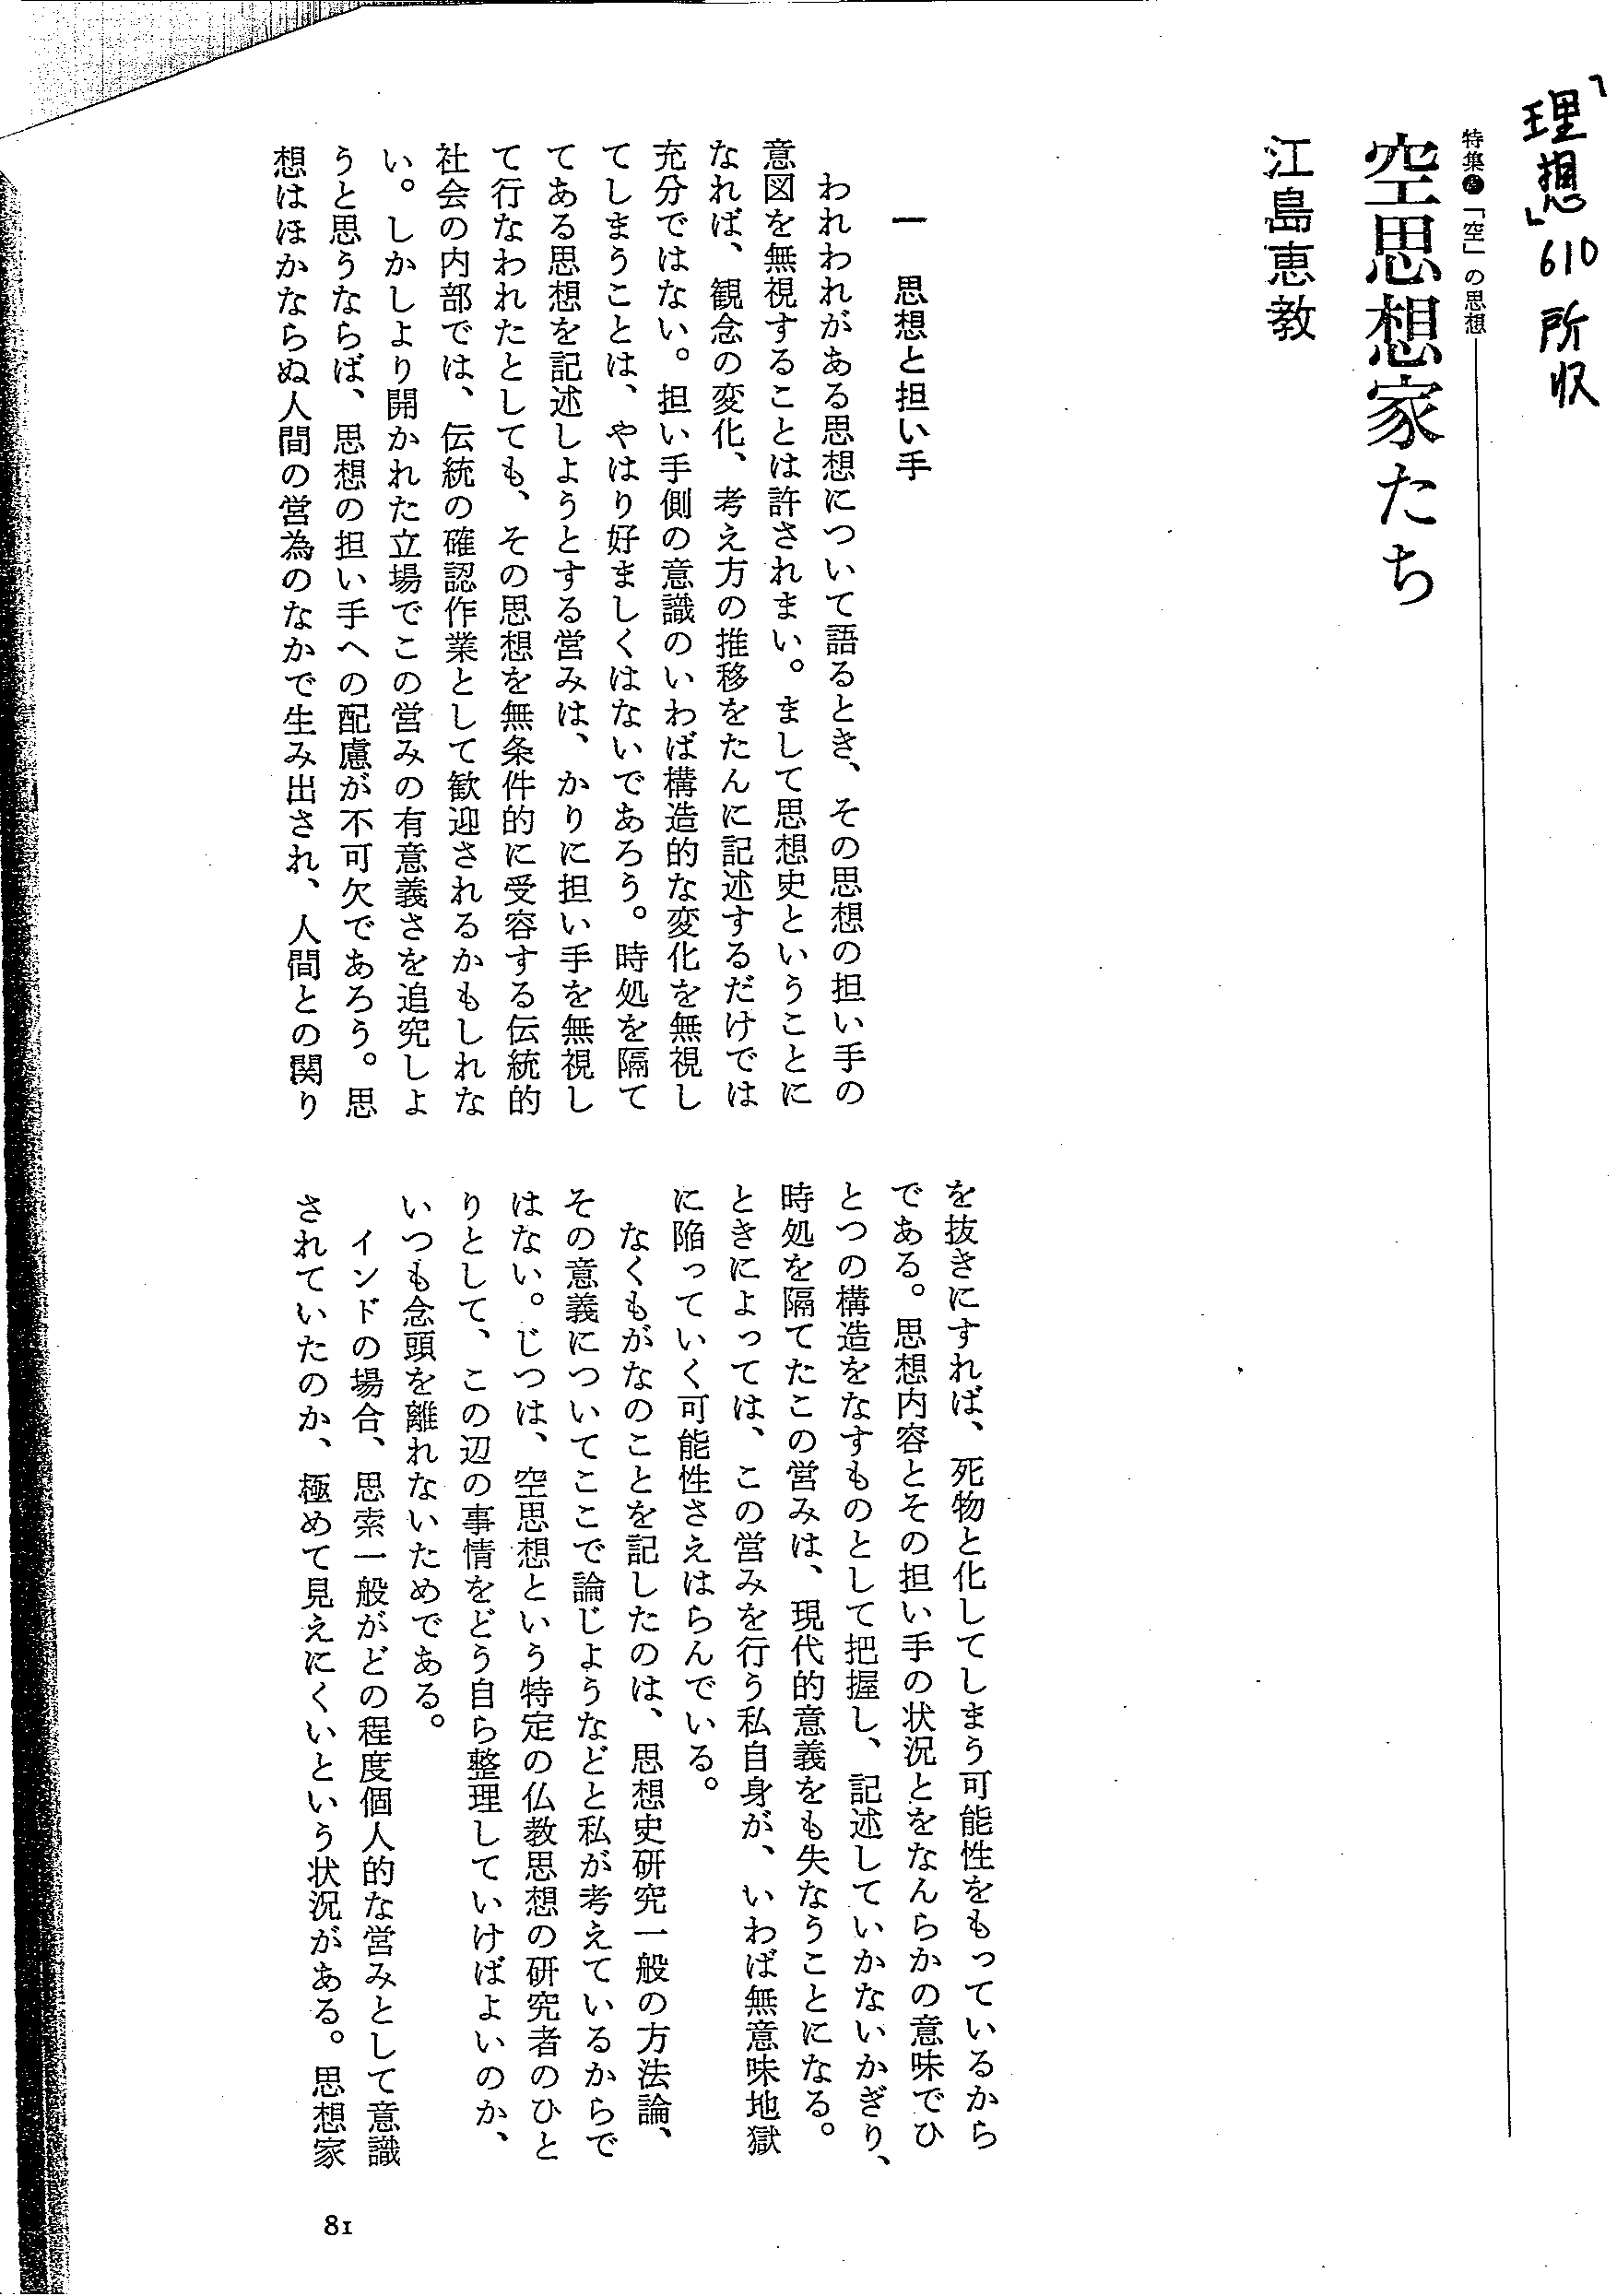 「理想」610所収
特集●「空」の思想
空思想家たち
江島恵教
一　思想と担い手
われわれがある思想について語るとき、その思想の担い手の
意図を無視することは許されまい。まして思想史ということに
なれば、観念の変化、考え方の推移をたんに記述するだけでは
充分ではない。担い手側の意識のいわば構造的な変化を無視し
てしまうことは、やはり好ましくはないであろう。時処を隔て
てある思想を記述しようとする営みは、かりに担い手を無視し
て行なわれたとしても、その思想を無条件的に受容する伝統的
社会の内部では、伝統の確認作業として歓迎されるかもしれな
い。しかしより開かれた立場でこの営みの有意義さを追究しよ
うと思うならば、思想の担い手への配慮が不可欠であろう。思
想はほかならぬ人間の営為のなかで生み出され、人間との関り
を抜きにすれば、死物と化してしまう可能性をもっているから
である。思想内容とその担い手の状況とをなんらかの意味でひ
とつの構造をなすものとして把握し、記述していかないかぎり、
時処を隔てたこの営みは、現代的意義をも失なうことになる。
ときによっては、この営みを行う私自身が、いわば無意味地獄
に陥っていく可能性さえはらんでいる。
なくもがなのことを記したのは、思想史研究一般の方法論、
その意義についてここで論じようなどと私が考えているからで
はない。じつは、空思想という特定の仏教思想の研究者のひと
りとして、この辺の事情をどう自ら整理していけばよいのか、
いつも念頭を離れないためである。
インドの場合、思索一般がどの程度個人的な営みとして意識
されていたのか、極めて見えにくいという状況がある。思想家
81